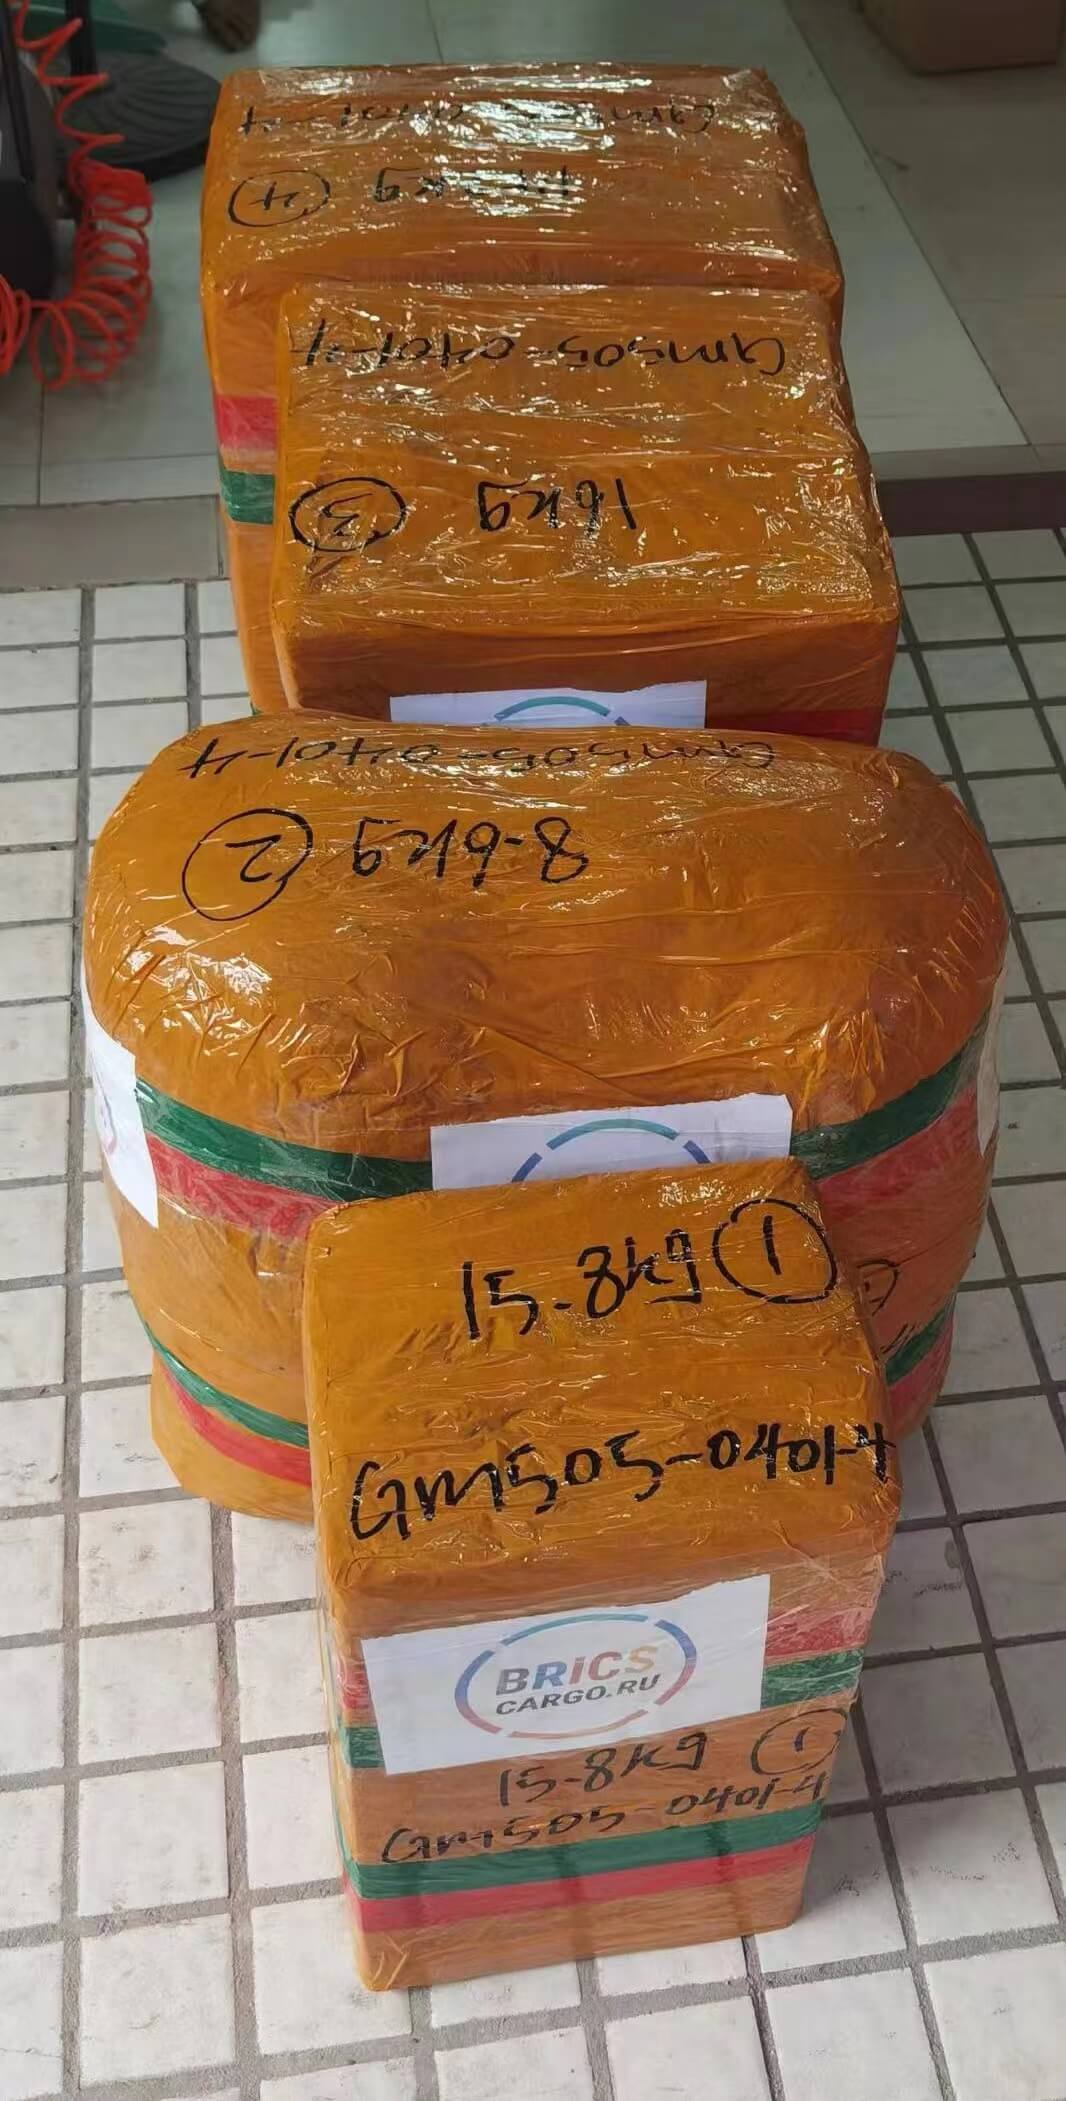 Gm505-0401-4
④
Gm505-0401-4
③ 16kg
Gm505-0401-4
② 8-6kg
15-8kg ①
Gm505-0401-4
BRICS
CARGO.RU
15-8kg ①
Gm505-0401-4